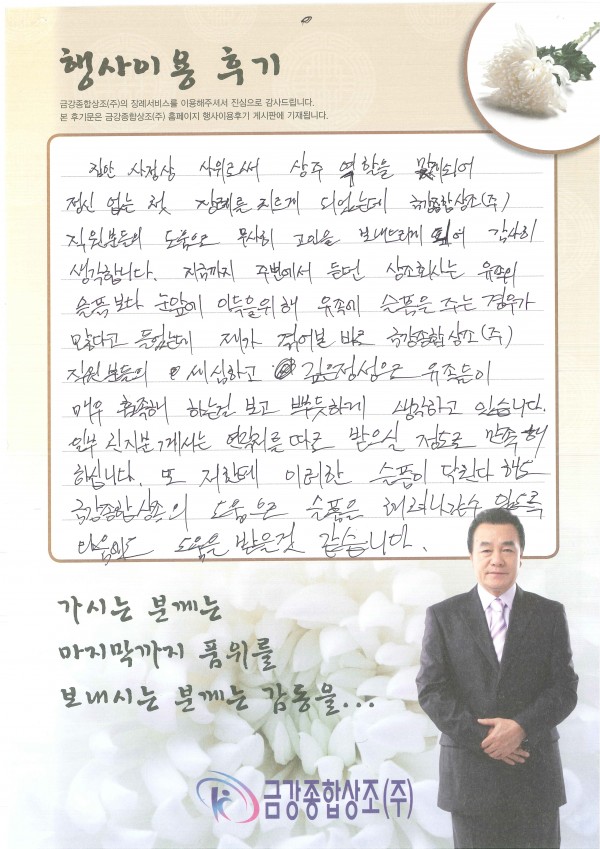 행사이용 후기
금강종합상조(주)의 장례서비스를 이용해주셔서 진심으로 감사드립니다.
본 후기문은 금강종합상조(주) 홈페이지 행사이용후기 게시판에 기재됩니다.
집안 사정상 사위로써 상주 역할을 맡게되어
정신 없는 첫 장례를 치르게 되었는데 금강종합상조(주)
직원분들의 도움으로 무사히 고인을 보내드리게 되어 감사히
생각합니다. 지금까지 주변에서 듣던 상조회사는 유족의
슬픔보다 눈앞에 이득을위해 유족에 슬픔을 주는 경우가
많다고 들었는데 제가 겪어본 바로 금강종합상조(주)
직원분들의 세심하고 깊은정성으로 유족들이
매우 흡족해 하는걸 보고 뿌듯하게 생각하고 있습니다.
일부 친지분께서는 연락처를 따로 받으실 정도로 만족해
하십니다. 또 저한테 이러한 슬픔이 닥친다 해도
금강종합상조의 도움으로 슬픔을 헤쳐나갈수 있도록
마음의 도움을 받을것 같습니다.
가시는 분께는
마지막까지 품위를
보내시는 분께는 감동을...
금강종합상조(주)